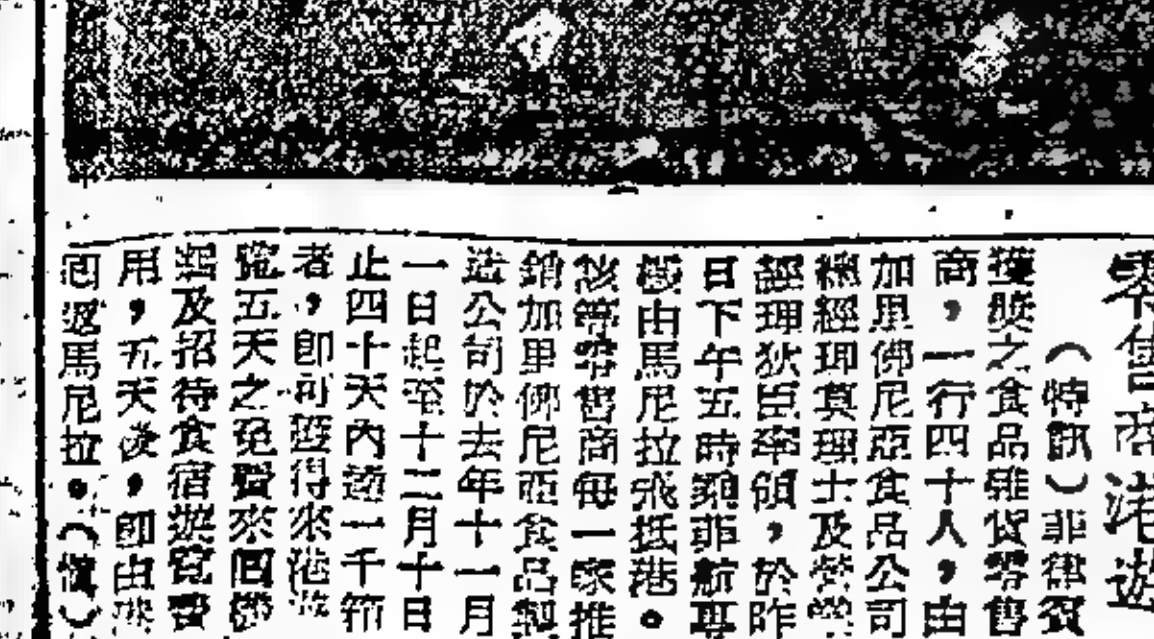 零售商港遊
（特訊）菲律賓
獲獎之食品雜貨零售
商，一行四十人，由
加里佛尼亞食品公司
總經理莫理士及營業
經理狄臣率領，於昨
日下午五時乘菲航專
機由馬尼拉飛抵港。
該等零售商每一家推
銷加里佛尼亞食品製
造公司於去年十一月
一日起至十二月十日
止四十天內逾一千箱
者，即可獲得來港遊
覽五天之免費來回機
票及招待食宿遊覽費
用，五天後，即由港
回返馬尼拉。（慎）